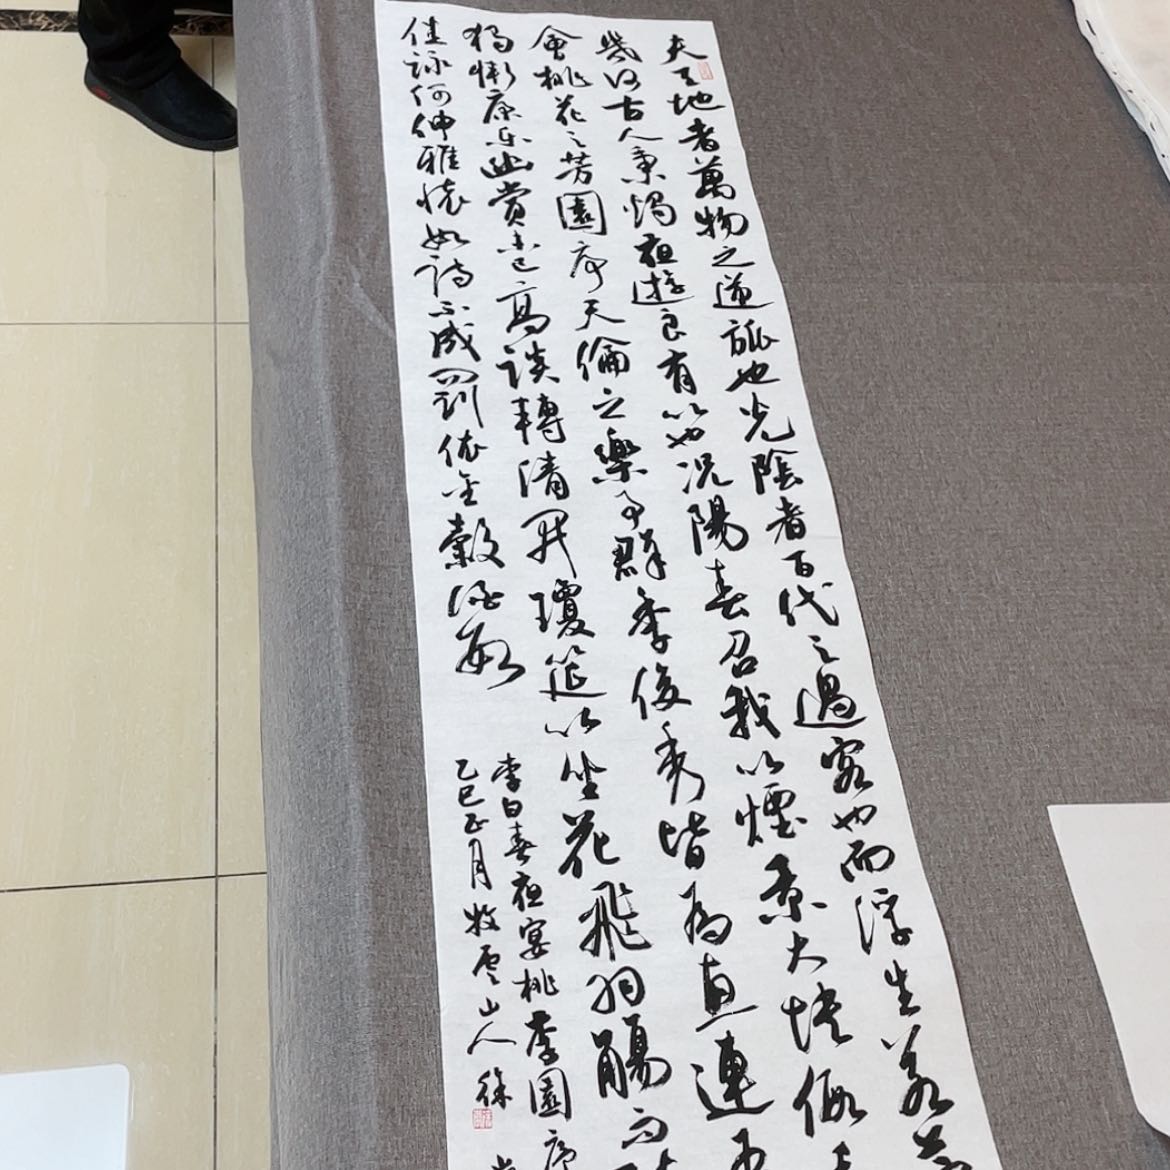 夫天地者萬物之逆旅也光陰者百代之過客也而浮生若
幾何古人秉燭夜遊良有以也况陽春召我以煙景大塊假
會桃花之芳園序天倫之樂事群季俊秀皆為惠連
獨慚康樂幽賞未已高談轉清開瓊筵以坐花飛羽觴而
佳詠何伸雅懷如詩不成罰依金穀酒數
李白春夜宴桃李園序
乙巳正月牧雲山人徐